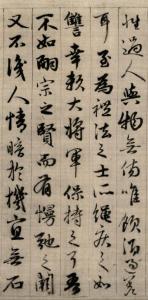 性過人與物無傷唯飲酒過差
耳至為禮法之士所繩疾之如
讎幸賴大將軍保持之耳吾
不如嗣宗之賢而有慢弛之闕
又不識人情暗於機宜無石